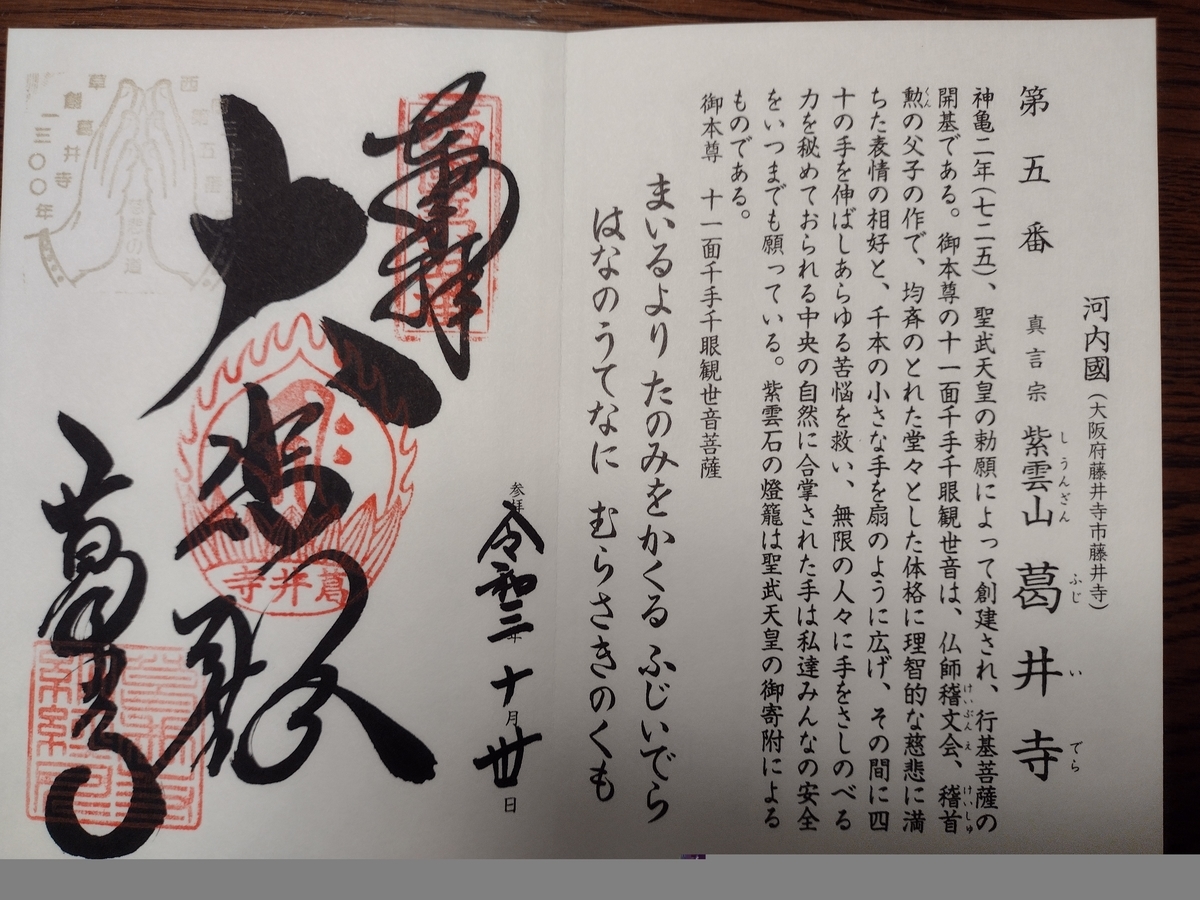 河内國（大阪府藤井寺市藤井寺）
第五番 真言宗 紫雲山 葛井寺
しうんざん ふじ い でら
神亀二年（七二五）、聖武天皇の勅願によって創建され、行基菩薩の
開基である。御本尊の十一面千手千眼観世音は、仏師稽文会、稽首
けいぶんえ けいしゅ
勲の父子の作で、均斉のとれた堂々とした体格に理智的な慈悲に満
くん
ちた表情の相好と、千本の小さな手を扇のように広げ、その間に四
十の手を伸ばしあらゆる苦悩を救い、無限の人々に手をさしのべる
力を秘めておられる中央の自然に合掌された手は私達みんなの安全
をいつまでも願っている。紫雲石の燈籠は聖武天皇の御寄附による
ものである。
御本尊 十一面千手千眼観世音菩薩
まいるより たのみをかくる ふじいでら
はなのうてなに むらさきのくも
参拝 令和二年 十月 廿日
奉拝
大悲殿
葛井寺
葛井寺
西国五番
葛井寺
草創一三〇〇年